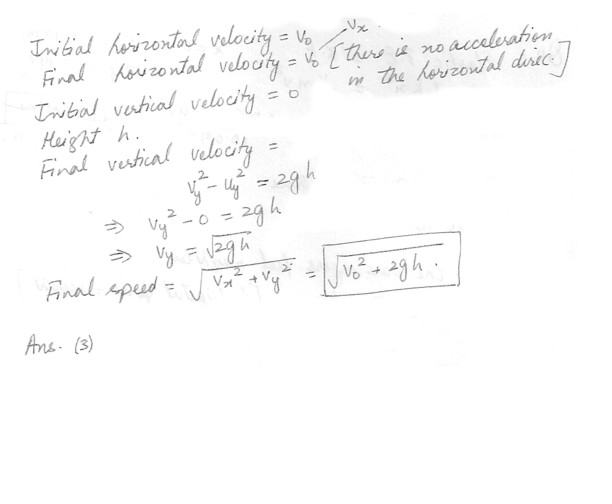 Initial horizontal velocity = v₀
Final horizontal velocity = v₀ vₓ [there is no acceleration in the horizontal direc.]
Initial vertical velocity = 0
Height h.
Final vertical velocity =
v_y² - u_y² = 2gh
⇒ v_y² - 0 = 2gh
⇒ v_y = √2gh
Final speed = √vₓ² + v_y² = √v₀² + 2gh.
Ans. (3)